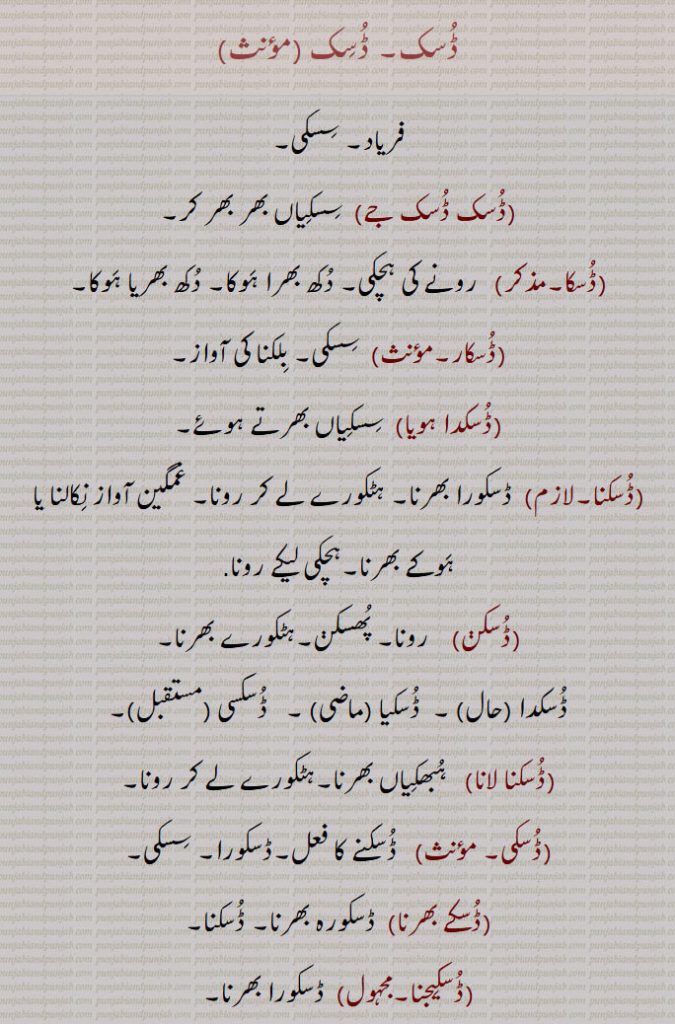 ڈُسک۔ ڈُسِک (مؤنث)
فریاد۔ سِسکی۔
(ڈُسک ڈُسک جے) سِسکِیاں بھر بھر کر۔
(ڈُسکا۔مذکر) رونے کی ہچکی۔ دُکھ بھرا ہَوکا۔ دُکھ بھریا ہَوکا۔
(ڈُسکار۔مؤنث) سِسکی۔ بِلکنا کی آواز۔
(ڈُسکدا ہویا) سِسکِیاں بھرتے ہوئے۔
(ڈُسکنا۔لازم) ڈسکورا بھرنا۔ ہٹکورے لے کر رونا۔ غمگین آواز نِکالنا یا
ہَوکے بھرنا۔ہچکی لیکے رونا.
(ڈُسکن) رونا۔ پُھسکن۔ہٹکورے بھرنا۔
ڈُسکدا (حال) ۔ ڈُسکیا (ماضی) ۔ ڈُسکسی (مستقبل)۔
(ڈُسکنا لانا) ہُبھکِیاں بھرنا۔ہٹکورے لے کر رونا۔
(ڈُسکی۔ مؤنث) ڈُسکنے کا فعل۔ڈسکورا۔ سِسکی۔
(ڈُسکے بھرنا) ڈسکورہ بھرنا۔ ڈُسکنا۔
(ڈُسکیجنا۔مجہول) ڈسکورا بھرنا۔